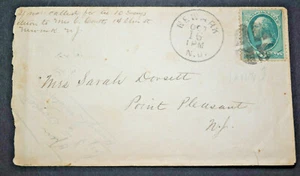 If not called for in 10 days
return to Mrs
Newark NJ
NEWARK
OCT
6
1 PM
N.J.
Mrs Sarah Dorsett
Point Pleasant
N.J.